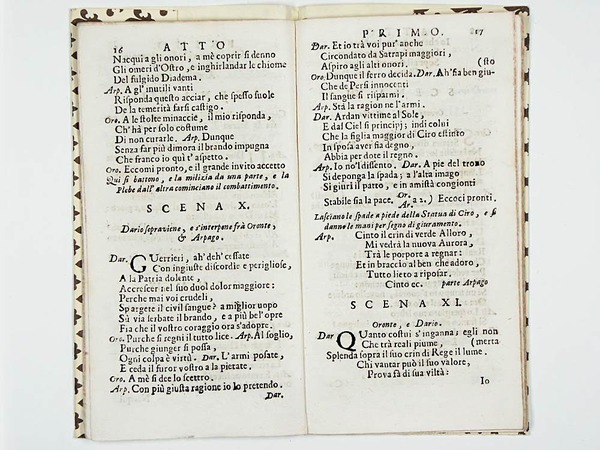 16 ATTO
Nacqui a gli onori, a mè coprir si denno
Gli omeri d'Ostro, e inghirlandar le chiome
Del fulgido Diadema.
Arp. A gl' inutili vanti
Risponda questo acciar, che spesso suole
De la temerità farsi castigo.
Oro. A le stolte minaccie, il mio risponda,
Ch'hà per solo costume
Di non curarle. Arp. Dunque
Senza far più dimora il brando impugna
Che franco io quì t'aspetto.
Oro. Eccomi pronto, e il grande invito accetto
Quì si battono, e la milizia da una parte, e la
Plebe dall'altra cominciano il combattimento.
SCENA X.
Dario sopraviene, e s'interpone frà Oronte,
& Arpago.
Dar. GUerrieri, ah' deh' cessate
Con ingiuste discordie e perigliose,
A la Patria dolente,
Accrescer nel suo duol dolor maggiore:
Perche mai voi crudeli,
Spargete il civil sangue? a miglior uopo
Sù via serbate il brando, e a più bel'opre
Fia che il vostro coraggio ora s'adopre.
Oro. Purche si regni il tutto lice. Arp. Al soglio,
Purche giunger si possa,
Ogni colpa è virtù. Dar. L'armi posate,
E ceda il furor vostro a la pietate.
Oro. A mè si dee lo scettro.
Arp. Con più giusta ragione io lo pretendo.
Dar.
PRIMO. 17
Dar. Et io trà voi pur'anche
Circondato da Satrapi maggiori,
Aspiro agli alti onori. (sto
Oro. Dunque il ferro decida. Dar. Ah' sia ben giu-
Che de Persi innocenti
Il sangue si rispiarmi.
Arp. Stà la ragion ne l'armi.
Dar. Ardan vittime al Sole,
E dal Ciel si principj; indi colui
Che la figlia maggior di Ciro estinto
In sposa aver sia degno,
Abbia per dote il regno.
Arp. Io no'l dissento. Dar. A piè del trono
Si deponga la spada; a l'alta imago
Si giuri il patto, e in amistà congionti
Stabile sia la pace. Oro. Ar. a 2.) Eccoci pronti.
Lasciano le spade a piede della Statua di Ciro, e si
danno le mani per segno di giuramento.
Arp. Cinto il crin di verde Alloro,
Mi vedrà la nuova Aurora,
Trà le porpore a regnar:
Et in braccio al ben che adoro,
Tutto lieto a riposar.
Cinto ec. parte Arpago
SCENA XI.
Oronte, e Dario.
Dar QUanto costui s'inganna; egli non
Che trà reali piume, (merta
Splenda sopra il suo crin di Rege il lume.
Chi vantar può il suo valore,
Prova fà di sua viltà:
Io